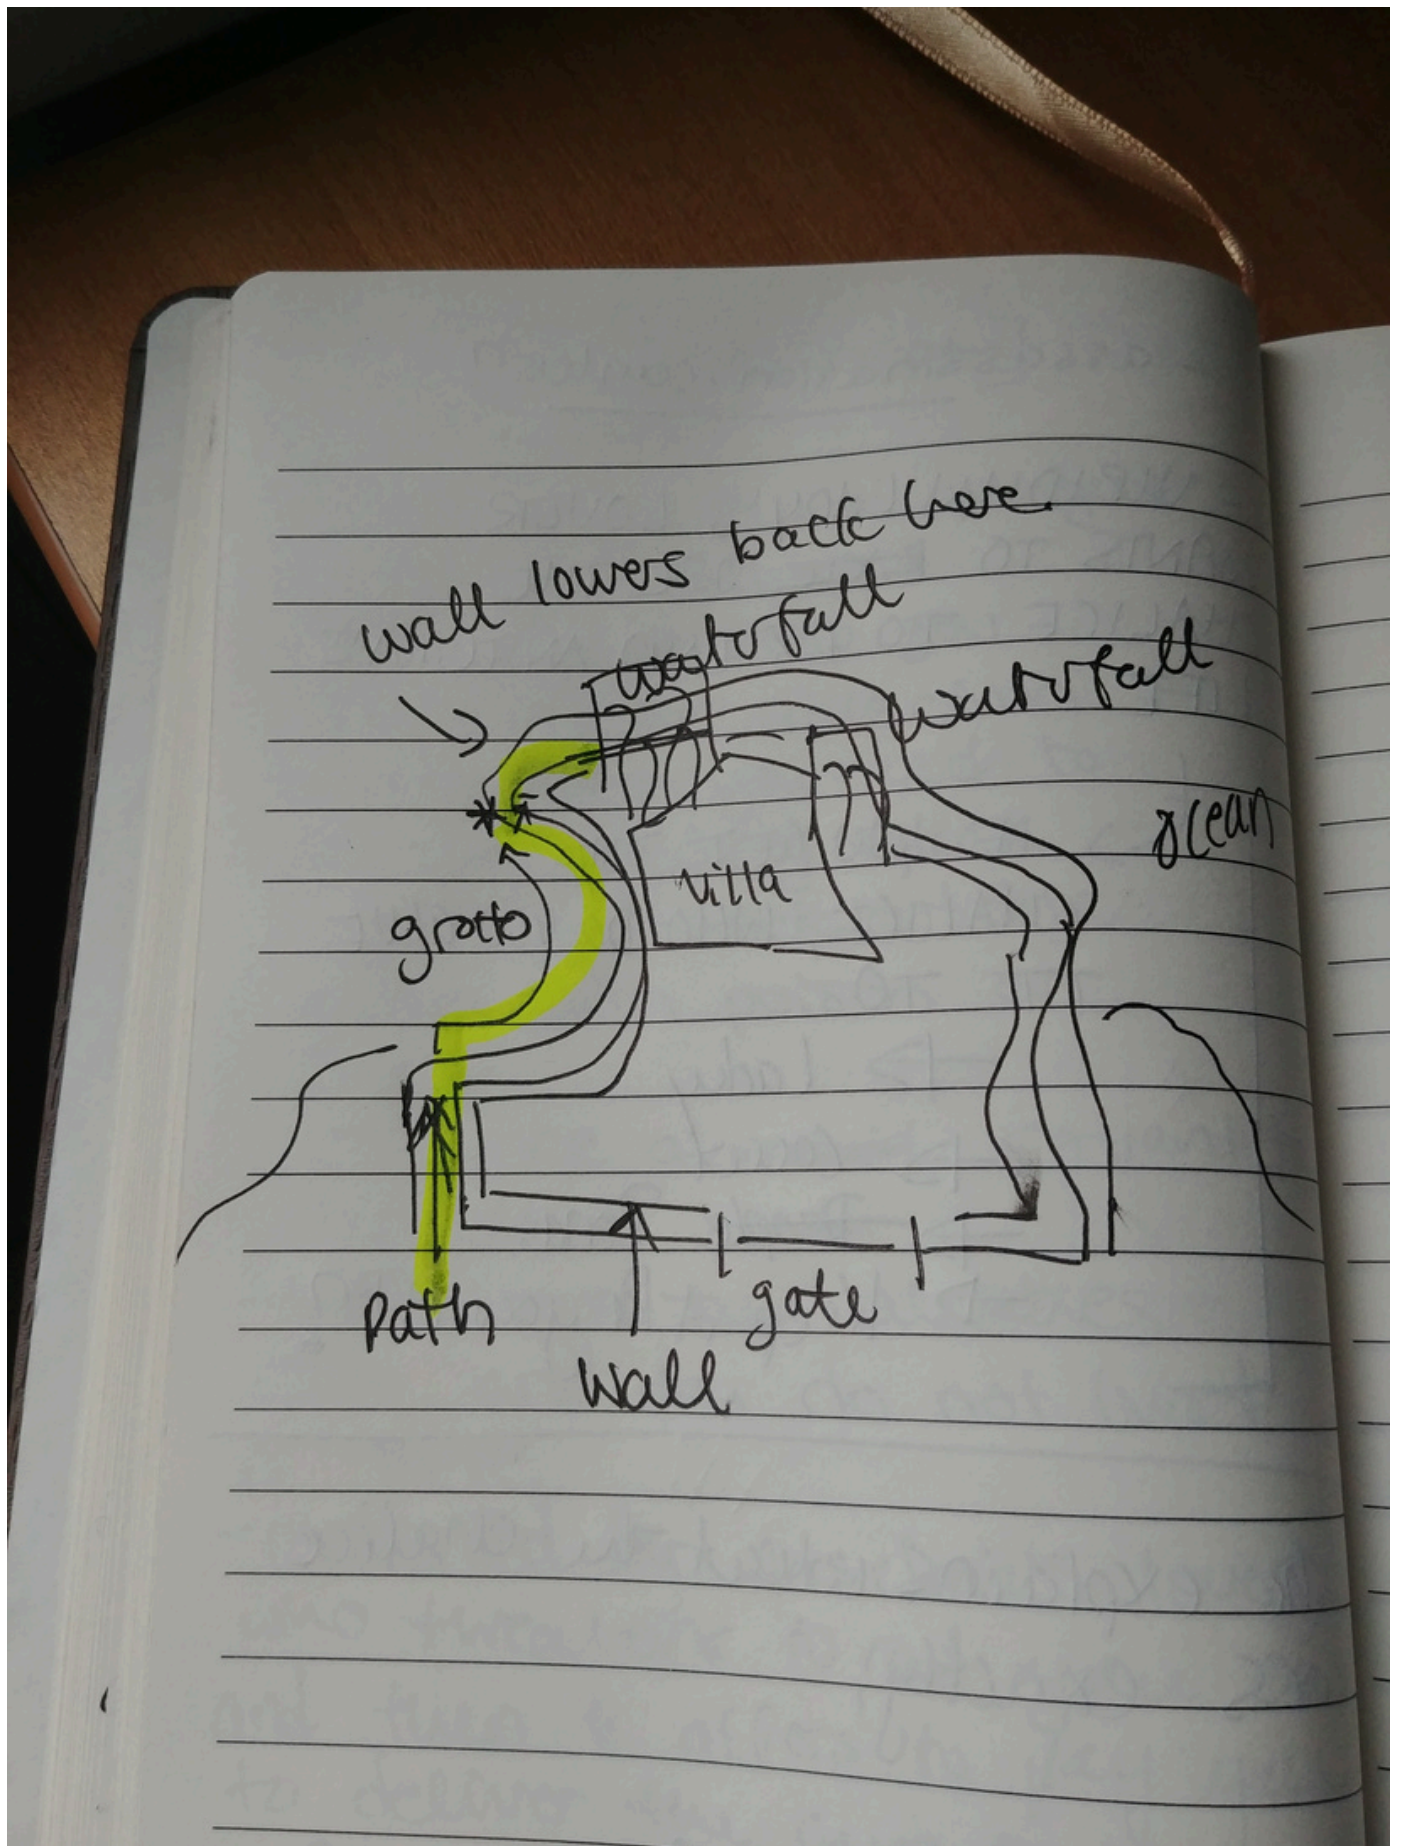 wall lowers back here
waterfall
waterfall
ocean
villa
grotto
Path
gate
wall